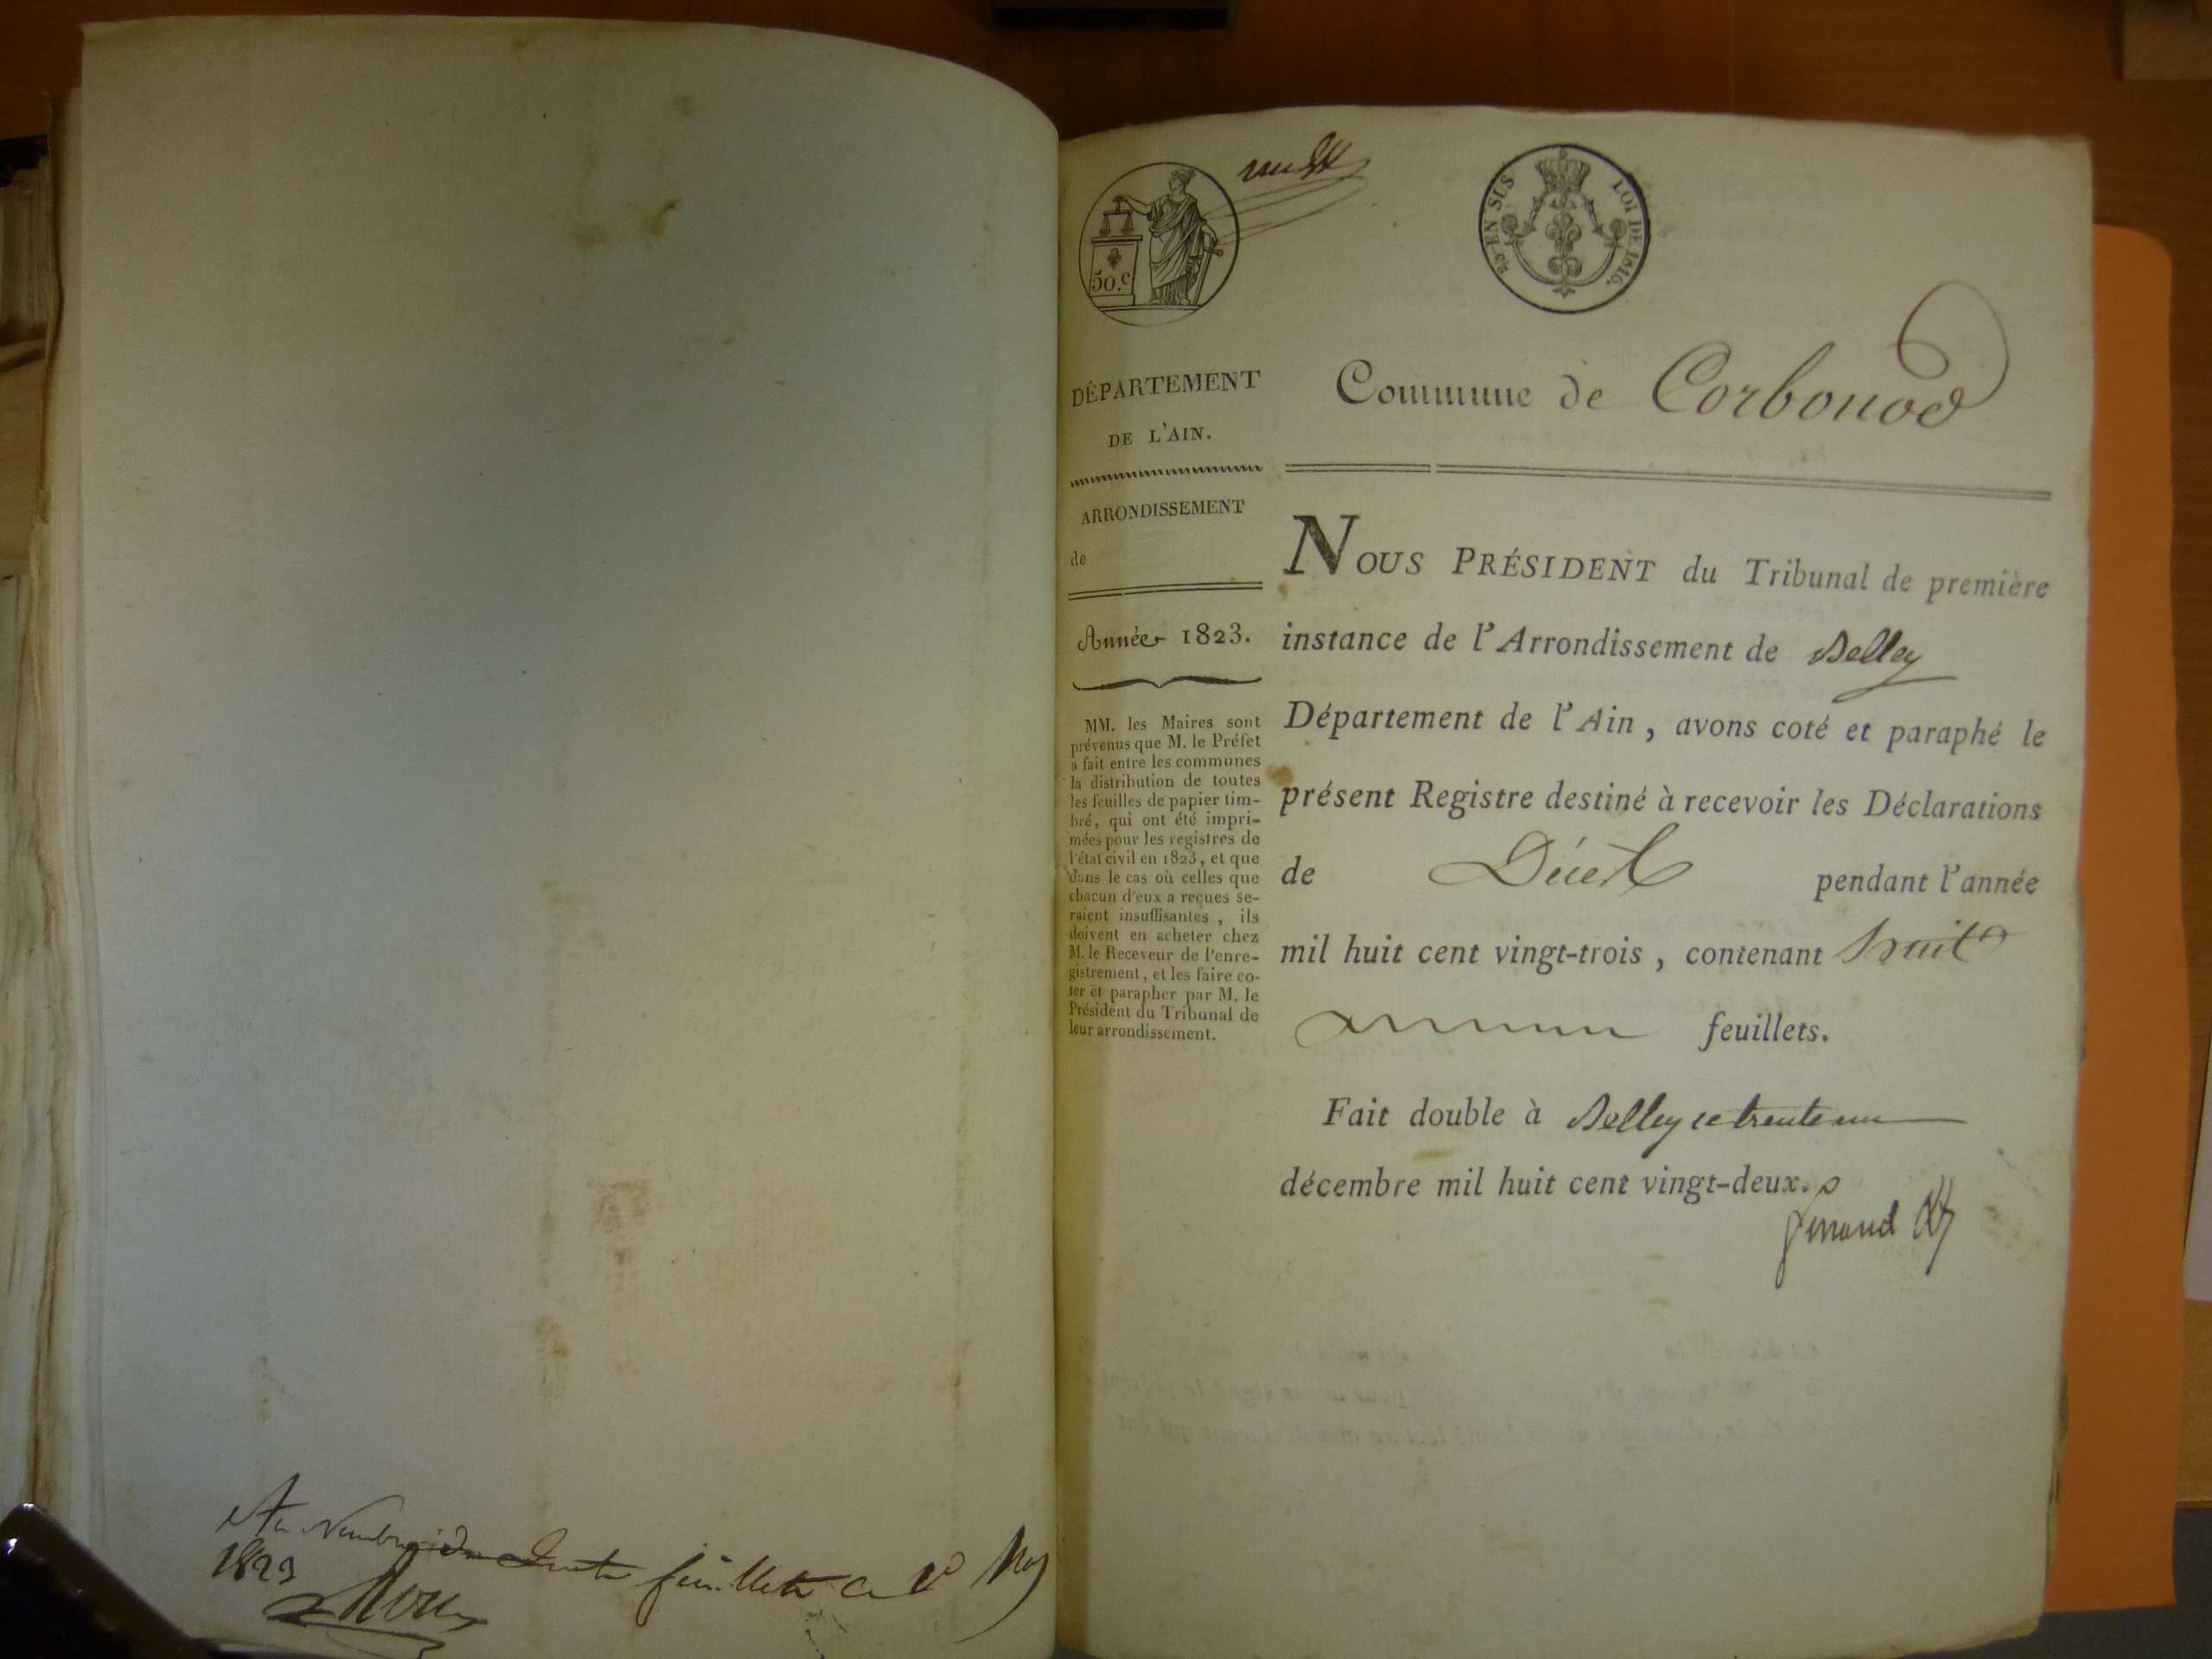 feuillets
1823
50.c
25 EN SUS LOI DE 1816.
DÉPARTEMENT
DE L'AIN.
ARRONDISSEMENT
de
Année 1823.
MM. les Maires sont
prévenus que M. le Préfet
a fait entre les communes
la distribution de toutes
les feuilles de papier tim-
bré, qui ont été impri-
mées pour les registres de
l'état civil en 1823, et que
dans le cas où celles que
chacun d'eux a reçues se-
raient insuffisantes, ils
doivent en acheter chez
M. le Receveur de l'enre-
gistrement, et les faire co-
ter et parapher par M. le
Président du Tribunal de
leur arrondissement.
Commune de Corbonod
NOUS PRÉSIDENT du Tribunal de première
instance de l'Arrondissement de Belley
Département de l'Ain, avons coté et paraphé le
présent Registre destiné à recevoir les Déclarations
de Décès pendant l'année
mil huit cent vingt-trois, contenant huit
feuillets.
Fait double à Belley ce trente un
décembre mil huit cent vingt-deux.